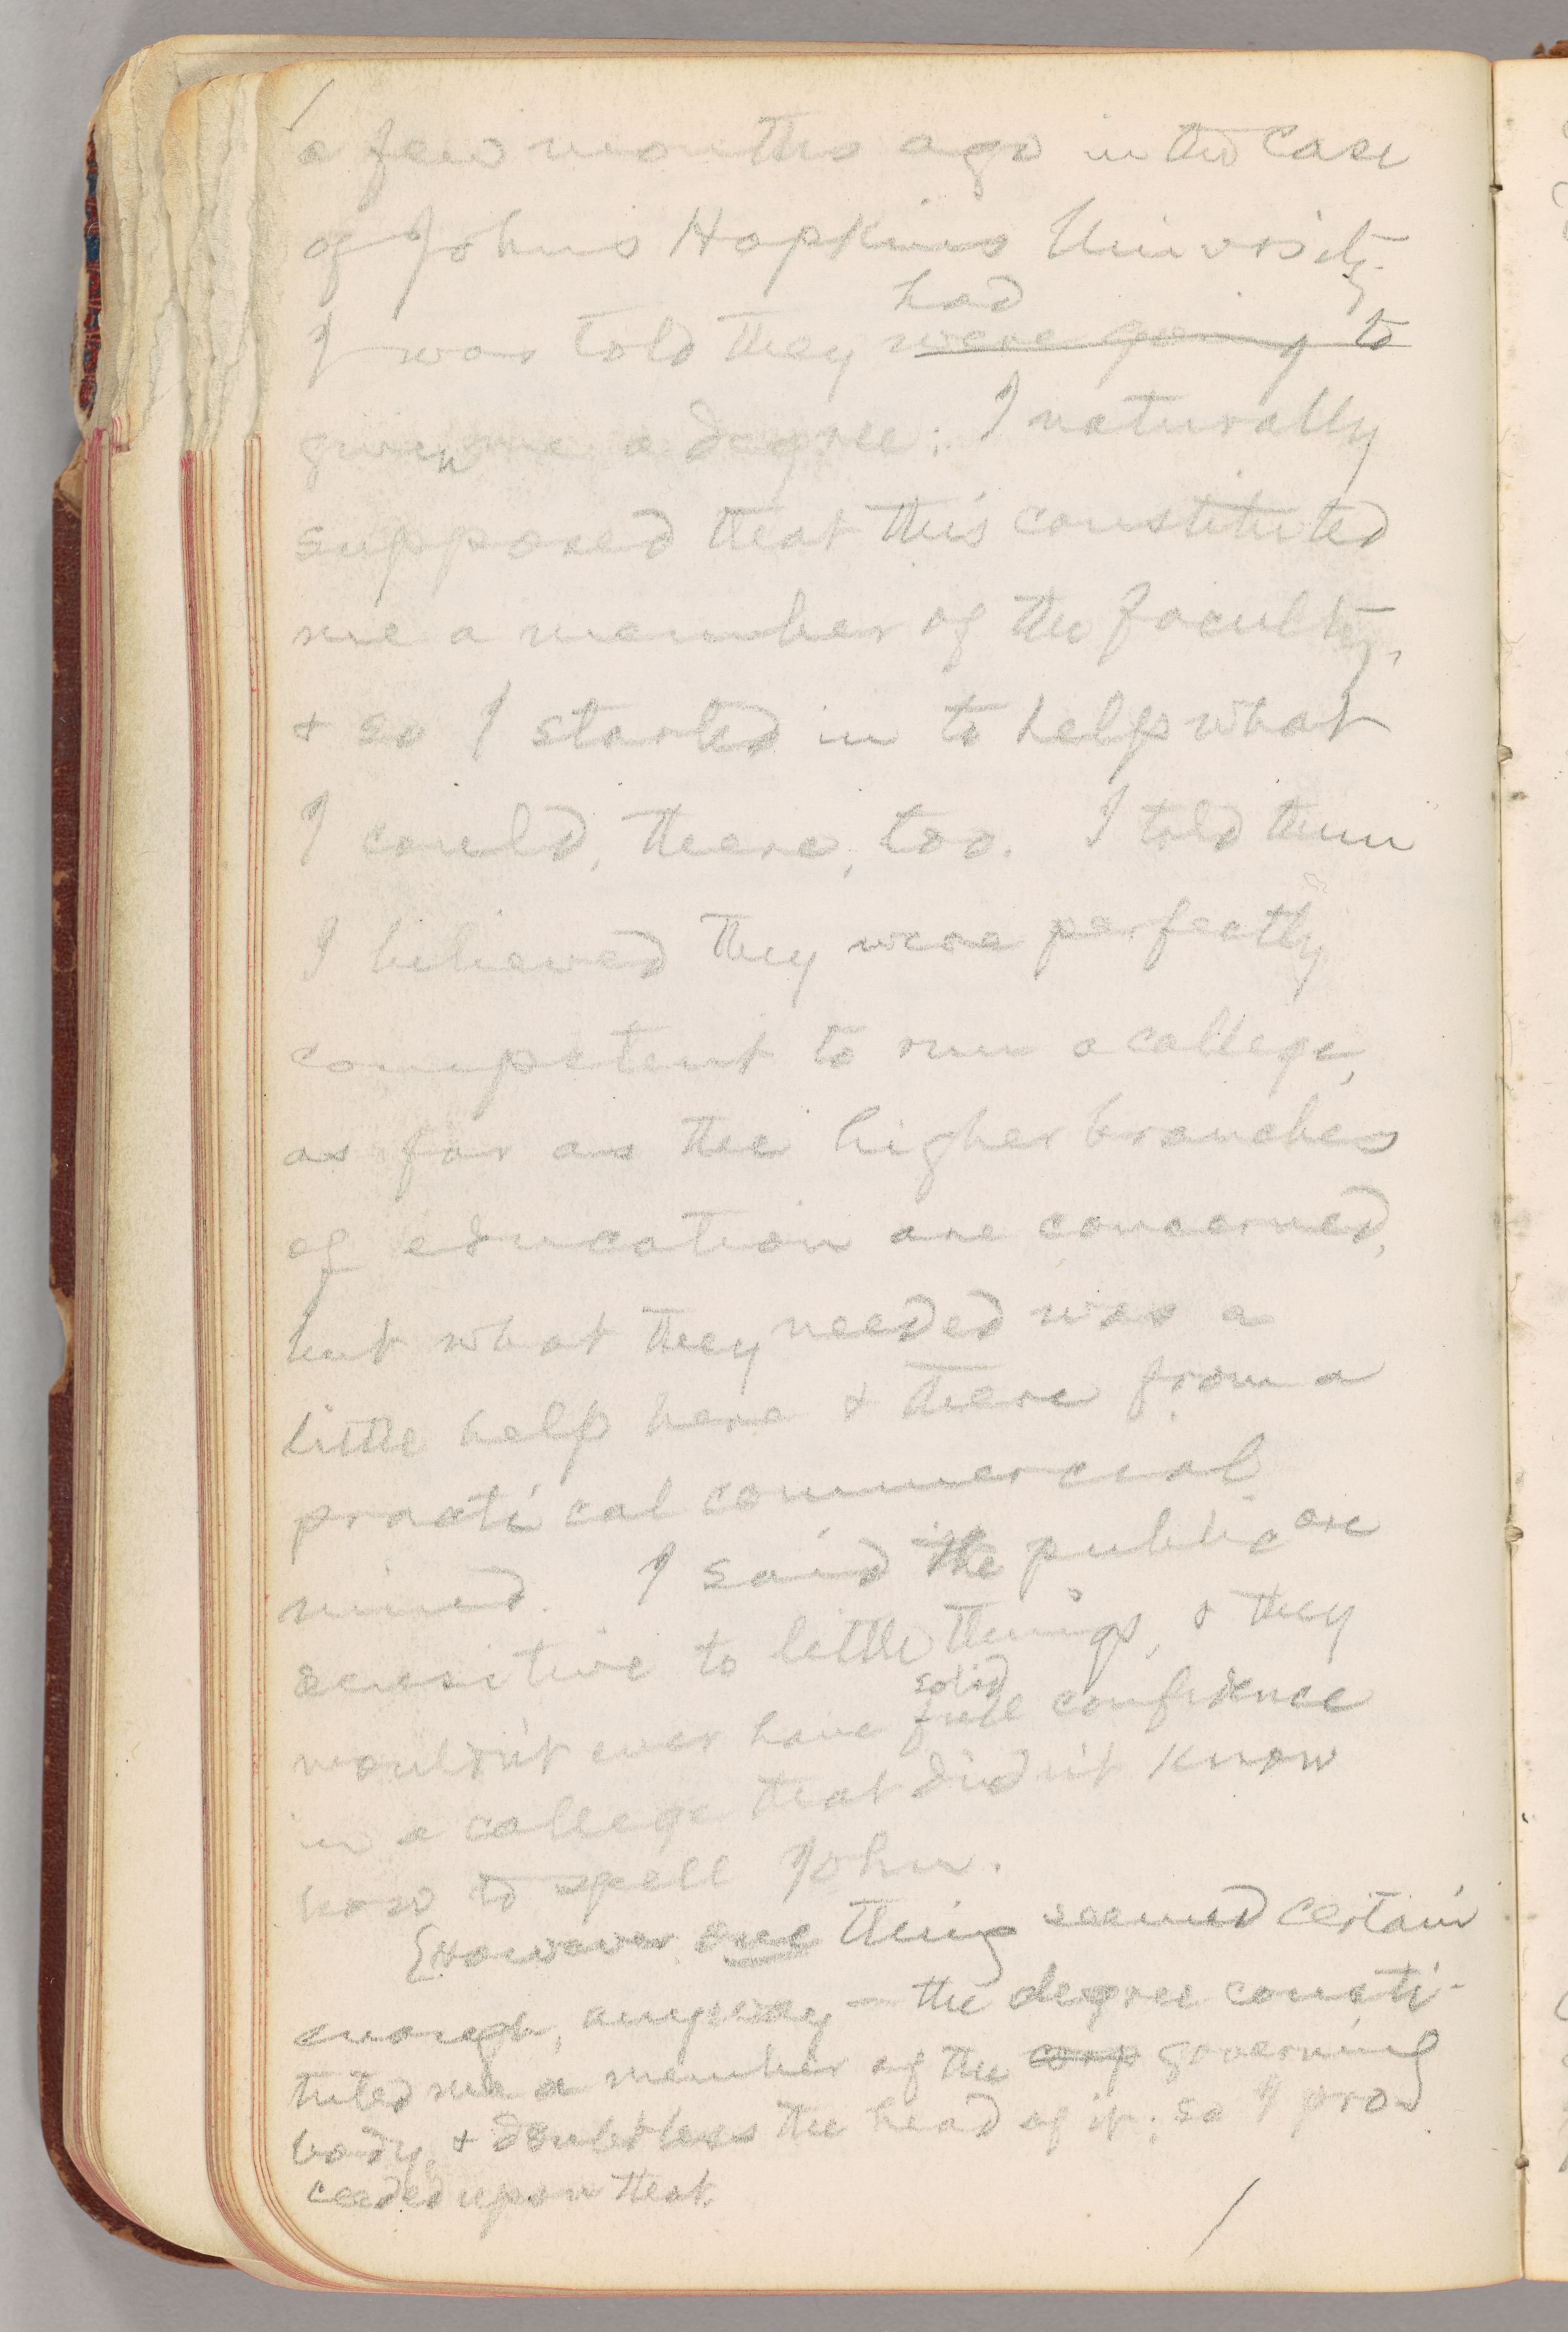 a few months ago in the case
of Johns Hopkins University.
had
I was told they were going to
given me a degree; I naturally
supposed that this constituted
me a member of the faculty,
+ so I started in to help what
I could, there, too. I told them
I believed they were perfectly
competent to run a college,
as far as the higher branches
of education are concerned,
but what they needed was a
little help here + there from a
practical commercial
mind. I said the public are
sensitive to little things, + they
solid
wouldn't ever have full confidence
in a college that didn't know
how to spell John.
[However one thing seemed certain
enough, anyway — the degree consti-
tuted me a member of the corp governing
body, + doubtless the head of it; so I pro-
ceeded upon that.